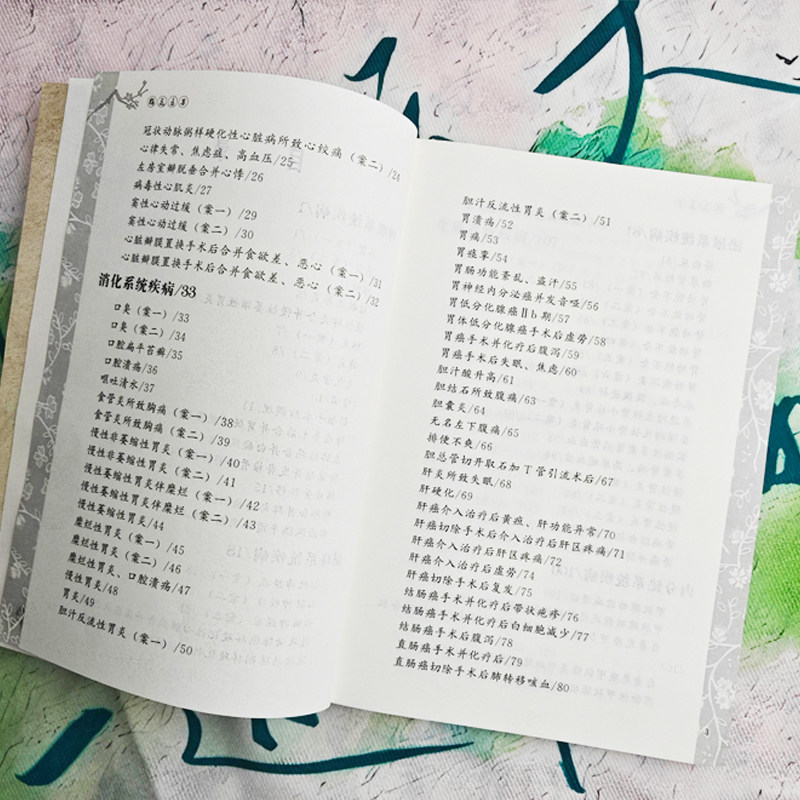 冠状动脉粥样硬化性心脏病所致心绞痛（案二）/24
心律失常、焦虑症、高血压/25
左房室瓣脱垂合并心悸/26
病毒性心肌炎/27
窦性心动过缓（案一）/29
窦性心动过缓（案二）/30
心脏瓣膜置换手术后合并食欲差、恶心（案一）/31
心脏瓣膜置换手术后合并食欲差、恶心（案二）/32
消化系统疾病/33
口炎（案一）/33
口炎（案二）/34
口腔扁平苔藓/35
口腔溃疡/36
呕吐清水/37
食管炎所致胸痛（案一）/38
食管炎所致胸痛（案二）/39
慢性非萎缩性胃炎（案一）/40
慢性非萎缩性胃炎（案二）/41
慢性萎缩性胃炎伴糜烂（案一）/42
慢性萎缩性胃炎伴糜烂（案二）/43
慢性萎缩性胃炎/44
糜烂性胃炎（案一）/45
糜烂性胃炎（案二）/46
糜烂性胃炎、口腔溃疡/47
慢性胃炎/48
胃炎/49
胆汁反流性胃炎（案一）/50
胆汁反流性胃炎（案二）/51
胃溃疡/52
胃痛/53
胃痉挛/54
胃肠功能紊乱、盗汗/55
胃神经内分泌癌并发音哑/56
胃低分化腺癌Ⅱb期/57
胃体低分化腺癌手术后虚劳/58
胃癌手术并化疗后腹泻/59
胃癌手术后失眠、焦虑/60
胆汁酸升高/61
胆结石所致腹痛/63
胆囊炎/64
无名左下腹痛/65
排便不爽/66
胆总管切开取石加T管引流术后/67
肝炎所致失眠/68
肝硬化/69
肝癌介入治疗后黄疸、肝功能异常/70
肝癌切除手术后介入治疗后肝区疼痛/71
肝癌介入治疗后肝区疼痛/72
肝癌介入治疗后虚劳/74
肝癌切除手术后复发/75
结肠癌手术并化疗后带状疱疹/76
结肠癌手术并化疗后白细胞减少/77
结肠癌手术后腹泻/78
直肠癌手术并化疗后/79
直肠癌切除手术后肺转移咳血/80